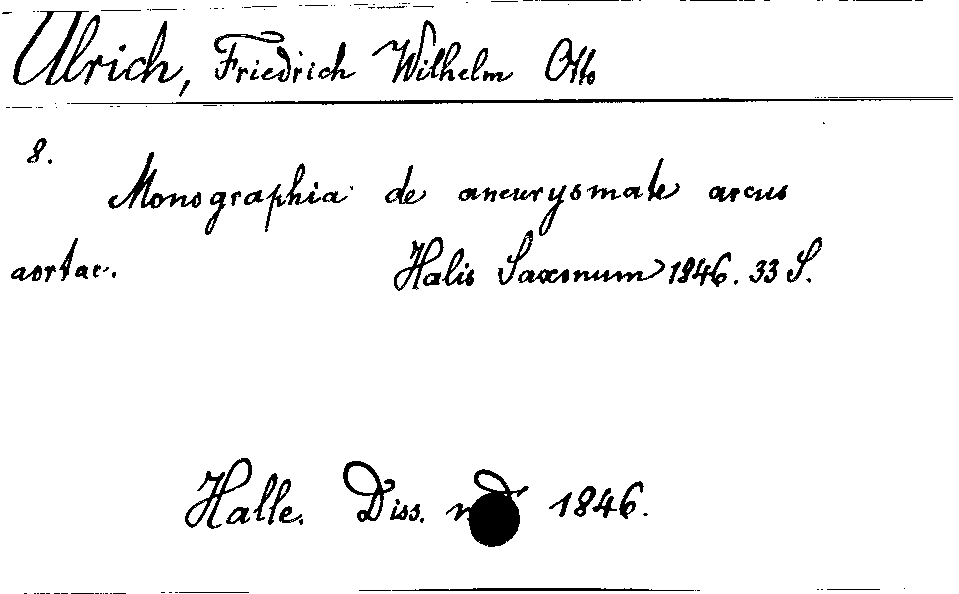 Ulrich, Friedrich Wilhelm Otto
8.
Monographia de aneurysmate arcus
aortae. Halis Saxonum 1846. 33 S.
Halle. Diss. 1846.